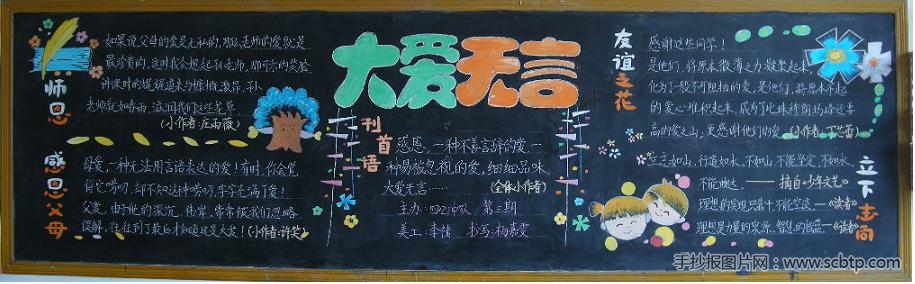 师恩
如果说父母的爱是无私的,那么老师的爱就是
最珍贵的,这时我会想起孙老师,那可亲的笑脸
老师就如春雨,滋润我们这些花草
(小作者:庄雨薇)
感恩父母
母爱,一种无法用言语表达的爱!有时,你会觉
得它唠叨,却不知这种唠叨,字字充满了爱!
父爱,由于他的深沉、伟岸,常常被我们忽略
误解,往往到了最后才知道这是大爱!(小作者:许笑)
大爱无言
刊首语
感恩,一种不善言辞的爱一
种易被忽视的爱,细细品味
大爱无言……
(全体小作者)
主办:四2中队 第三期
美工:季倩 书写:杨梦雯
友谊之花
感谢这些同学!
是他们,将原本微薄之力凝聚起来,
化为了一股不可阻挡的爱,是他们,将原本不起
的爱心堆积起来,成为了比珠穆朗玛峰还要
高的爱之山,更感谢他们的爱
立下志向
立志如山,行道如水,不如山,不能坚定,不如水,
不能曲达 —— 摘自《少年文艺》
理想的发现只若干不能空谈 ——《读者》
理想是力量的泉源、智慧的摇篮 ——《读者》
手抄报图片网:www.scbtp.com